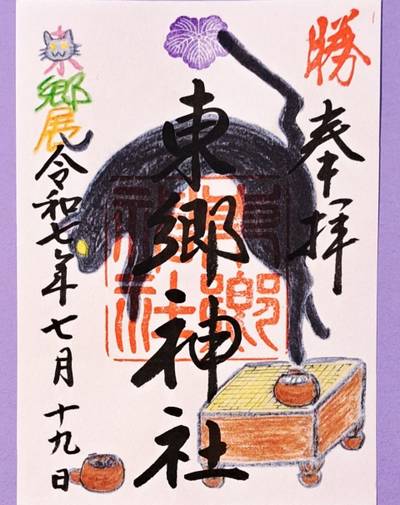 勝
奉拝
東郷神社
東郷
神社
東郷展
令和七年七月十九日